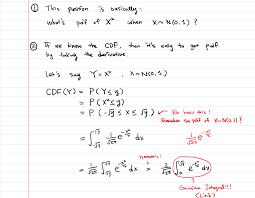 ① This question is basically:
What's pdf of X² when X ~ N(0,1) ?
② If we know the CDF, then it's easy to get pdf
by taking the derivative.
Let's say Y = X², X ~ N(0,1)
CDF(Y) = P(Y ≤ y)
= P(X² ≤ y)
= P(-√y ≤ X ≤ √y) We know this!
Remember the pdf of X~N(0,1)?
= ∫_{-√y}^{√y} 1/√2π e^{-x²/2} dx 1/√2π e^{-x²/2}
symmetric!
= 1/√2π ∫_{-√y}^{√y} e^{-x²/2} dx = 2/√2π ∫_0^{√y} e^{-x²/2} dx
Gaussian Integral!!!
(Link)